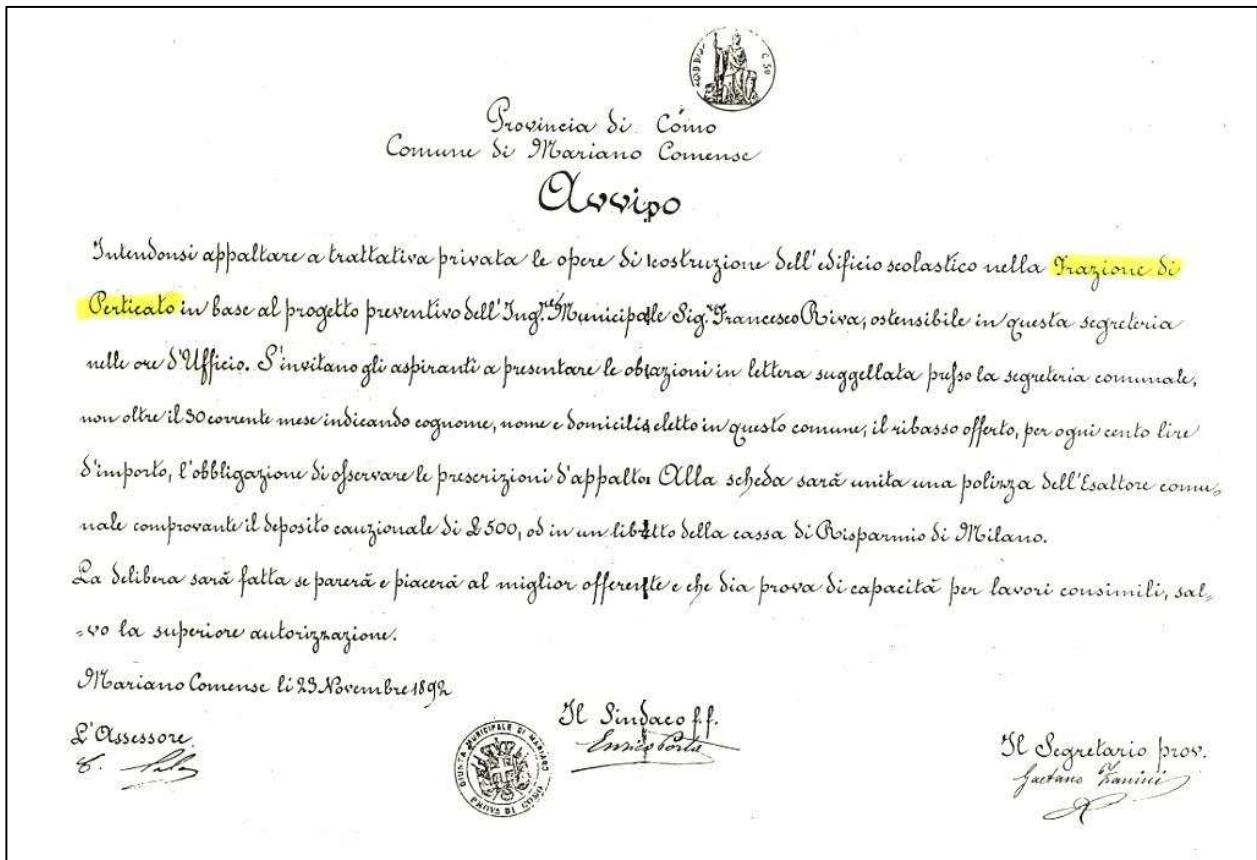 C. 50
Provincia di Como
Comune di Mariano Comense
Avviso
Intendonsi appaltare a trattativa privata le opere di costruzione dell'edificio scolastico nella Frazione di
Perticato in base al progetto preventivo dell'Ing.re Municipale Sig.r Francesco Riva, ostensibile in questa segreteria
nelle ore d'Ufficio. S'invitano gli aspiranti a presentare le oblazioni in lettera suggellata presso la segreteria comunale,
non oltre il 30 corrente mese indicando cognome, nome e domicilio eletto in questo comune, il ribasso offerto, per ogni cento lire
d'importo, l'obbligazione di osservare le prescrizioni d'appalto. Alla scheda sarà unita una polizza dell'Esattore comu=
nale comprovante il deposito cauzionale di £ 500, od in un libretto della cassa di Risparmio di Milano.
La delibera sarà fatta se parerà e piacerà al miglior offerente e che dia prova di capacità per lavori consimili, sal=
=vo la superiore autorizzazione.
Mariano Comense li 23 Novembre 1892
L'Assessore
Il Sindaco f.f.
Enrico Porta
GIUNTA MUNICIPALE DI MARIANO
Il Segretario prov.
Gaetano Zanini